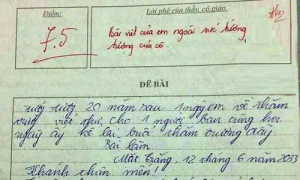 Điểm: Lời phê của thầy, cô giáo.
7.5
Bài viết của em ngoài sức tưởng
tượng của cô.
ĐỀ BÀI
tưởng tượng 20 năm sau 1 ngày em về thăm
trường viết thư cho 1 người bạn cùng học
ngày ấy kể lại buổi thăm trường đấy
Bài làm
12 tháng 6 năm 2033
Khanh thân mến!